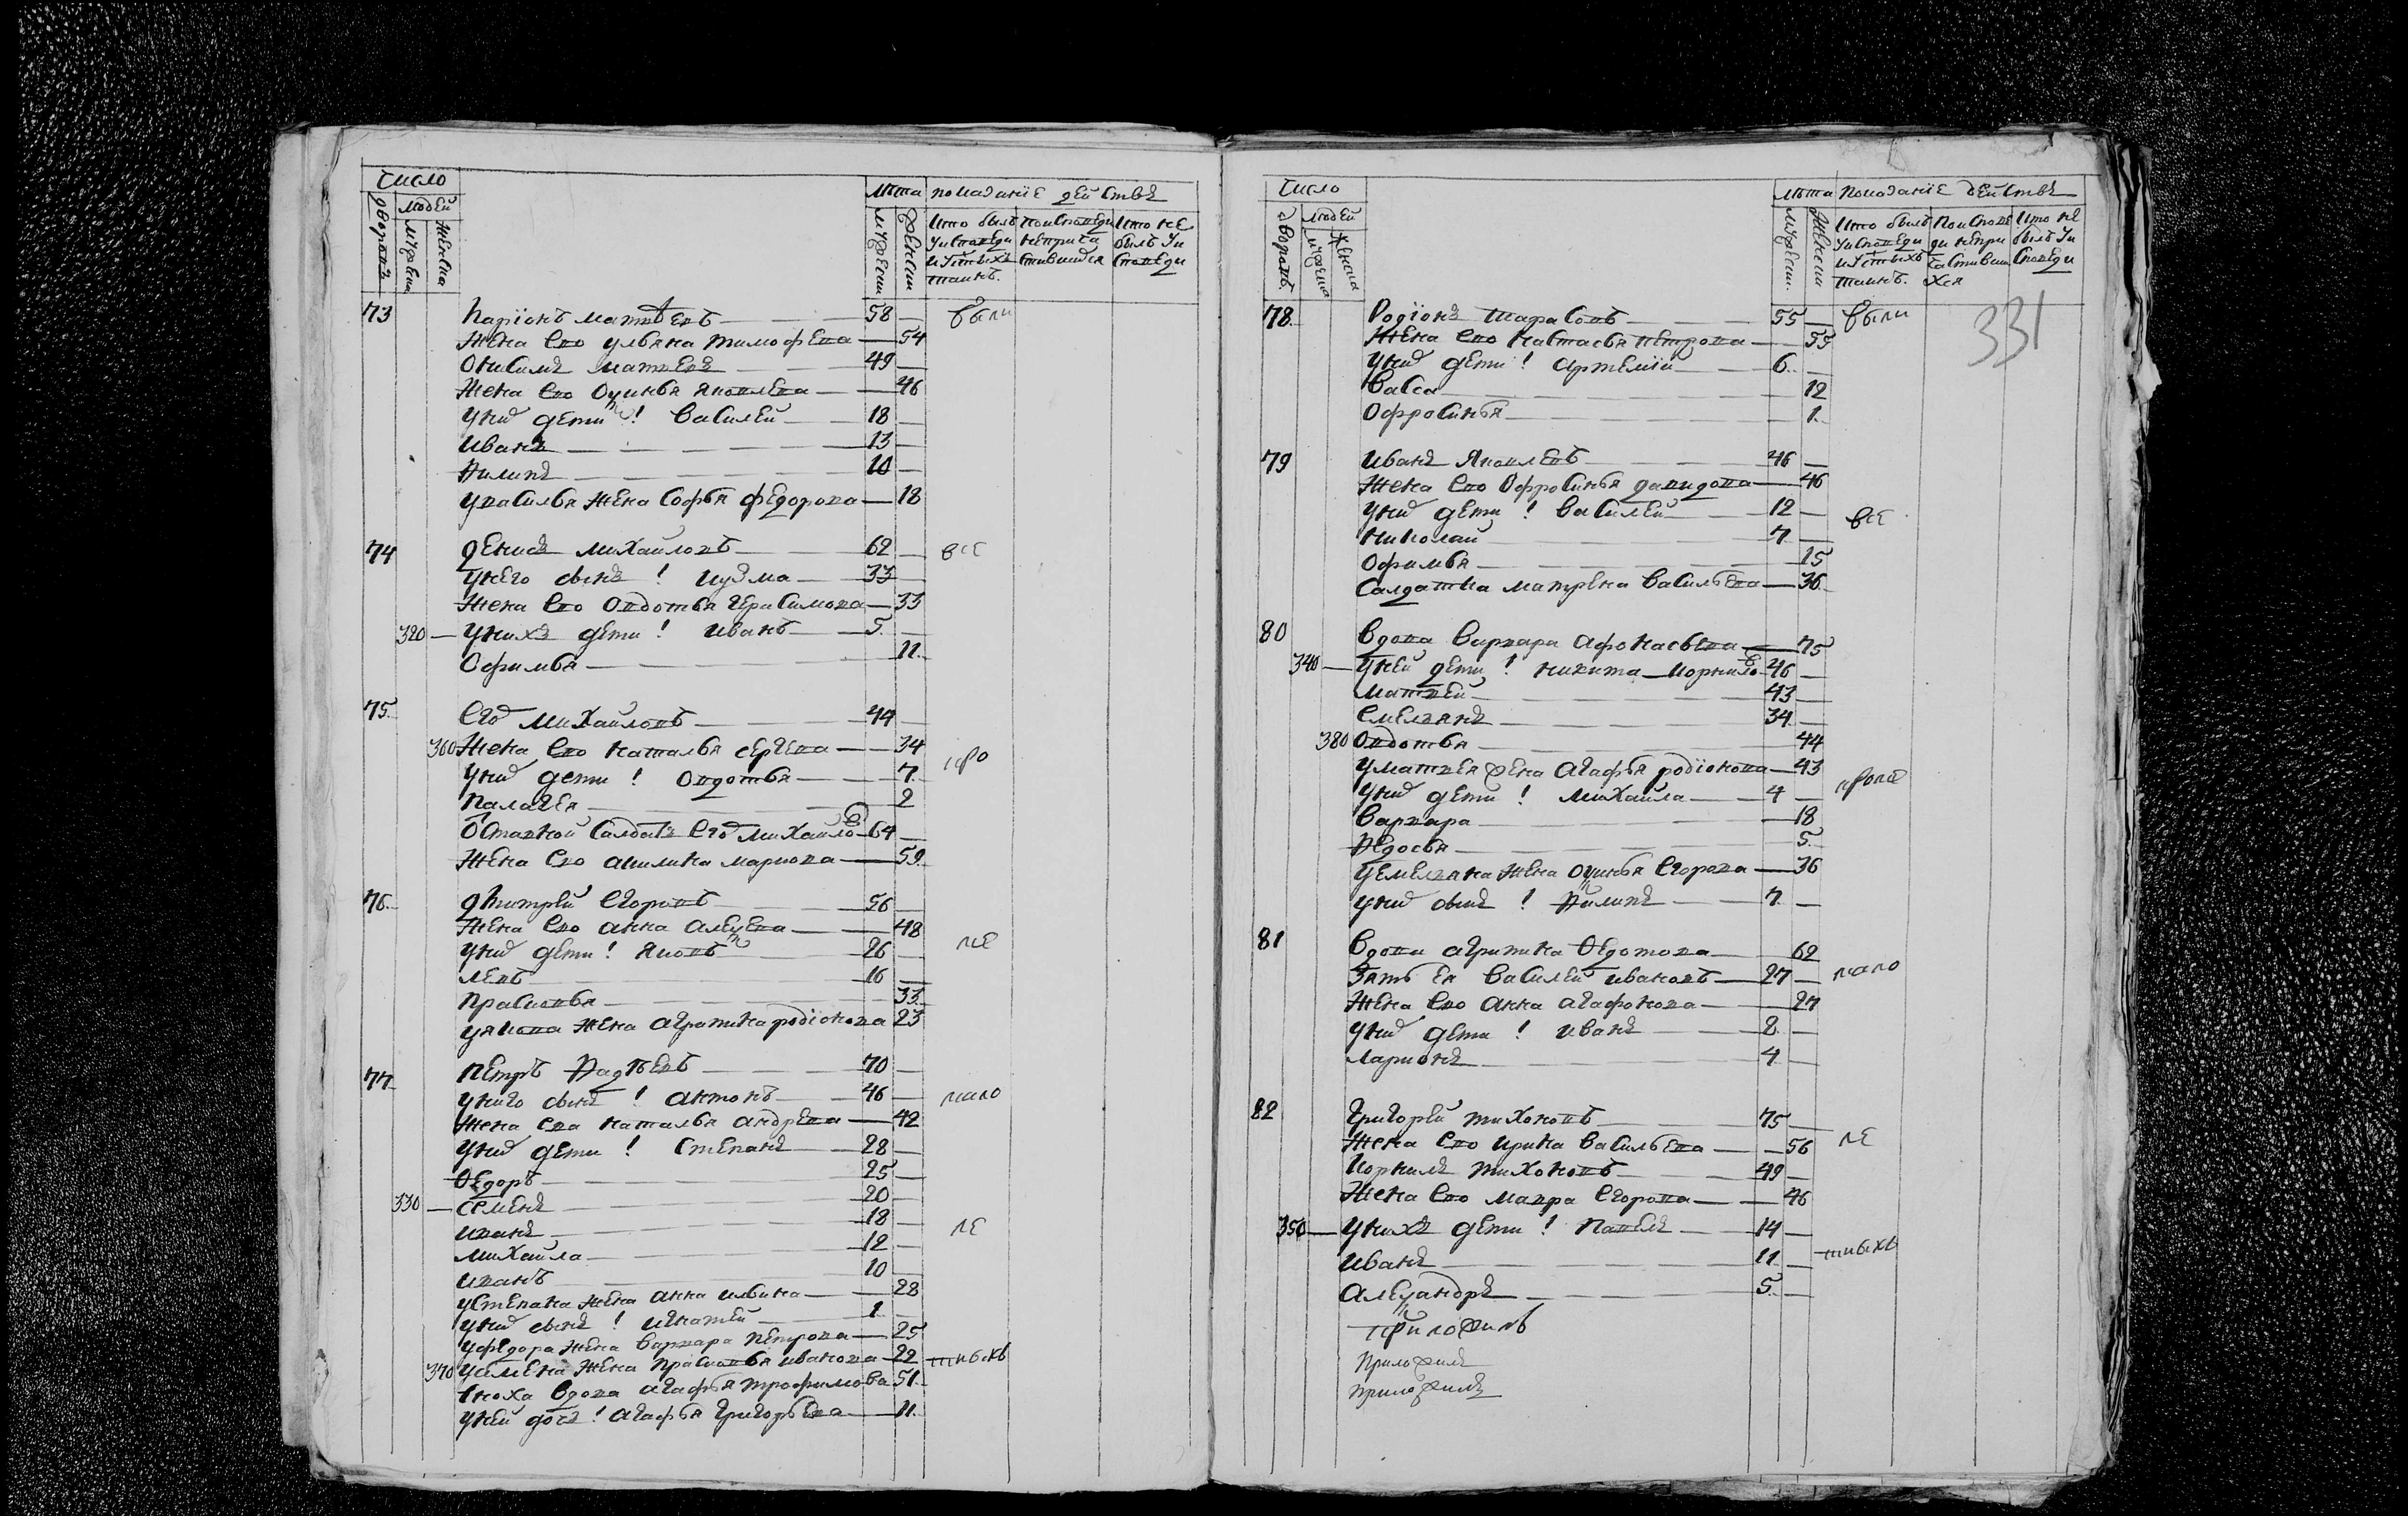 число
лѣта показанїе дѣйствъ
дворовъ
людей
мужеска
женска
мужески
женски
кто былъ
у исповеди
и у стыхъ
таинъ.
по исповеди
не прича
стившися
кто не
былъ у и
споведи
73 Ларїонъ матвѣевъ 58 были
Жена ево ульяна тимофева 54
Онисимъ матвевъ 49
Жена ево Оуинья яковлева 46
У них дети! Василей 18
Иванъ 13
Филипъ 10
У василья жена Софья федорова 18
74 денисъ михайловъ 62 всѣ
У него сынъ! кузма 33
Жена ево Овдотья герасимова 33
320 У нихъ дети! Иванъ 5
Офимья 11
75 Егор михайловъ 44
360 Жена ево наталья сергева 34 кро
У них дети! Овдотья 7
Палагея 2
Отставной Солдатъ Егор михайлов 64
Жена ево акилина маркова 59
76 дмитрей Егоровъ 56
Жена ево анна алеуева 48
У них дети! Яковъ 26 ме
левъ 16
Прасковья 33
У якова жена агрипина родїонова 23
77 Петръ Фадѣевъ 70
У него сынъ! антонъ 46 мало
Жена ева наталья андрева 42
У них дети! Степанъ 28
Ѳедоръ 25
330 Семенъ 20
иванъ 18 ле
Михаила 12
иванъ 10
У степана жена анна ильина 28
У них сынъ! игнатей 1
У федора жена варвара петрова 25
370 У семена жена прасковья иванова 22 тныхъ
Сноха вдова агафья трофимова 51
У ней дочь! агафья григорьева 11
число
лѣта показанїе дѣйствъ
дворовъ.
людей
мужеска
женска
мужески.
женски
кто былъ
у исповеди
и у стыхъ
таинъ.
по испове
ди не при
частивши
хся
кто не
былъ у и
споведи
331
78 Родїонъ тарасовъ 55 были
Жена ево настасья петрова 55
У них дети! артемїй 6
Васса 12
Офросинья 1
79 Иванъ Яковлевъ 46
Жена ево Офросинья давидова 46
У них дети! василей 12 всѣ
николай 7
Офимья 15
Салдатка матрена васильева 36
80 Вдова варвара афонасьева 75
340 У ней дети! никита корнилов 46
матвей 43
Емельянъ 34
380 Овдотья 44
У матвея жена агафья родїонова 43
У них дети! михаила 4 кроме
варвара 18
Федосья 5
У емельяна жена Оуинья Егорова 36
У них сынъ! Филипъ 7
81 Вдова агрипина Ѳедотова 62
Зять ея василей ивановъ 27 мало
Жена ево анна агафонова 27
У них дети! иванъ 2
ларионъ 4
82 Григорей тихоновъ 75
Жена ево ирина васильева 56 ле
Корнилъ тихоновъ 49
Жена ево мавра Егорова 46
350 У нихъ дети! Павелъ 14
Иванъ 11 тныхъ
Алеуандръ 5
приложилъ
Приложилъ
приложилъ